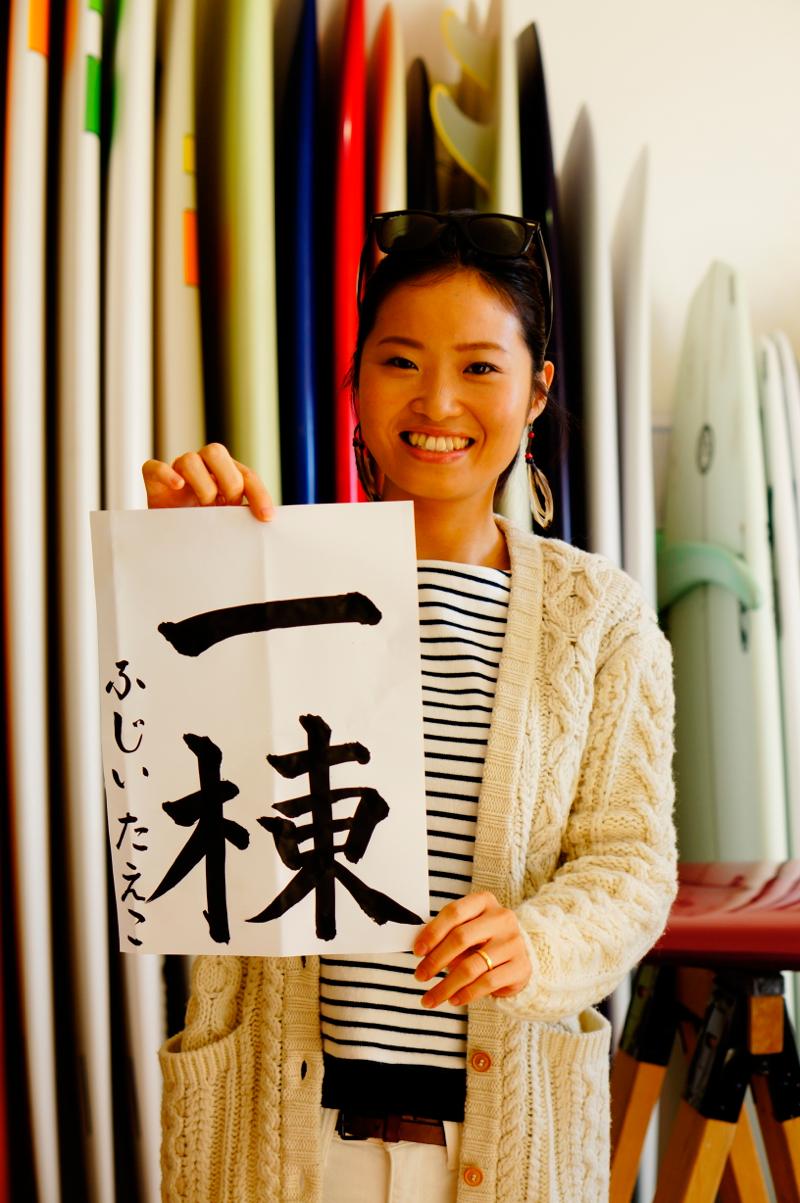 一棟
ふじいたえこ